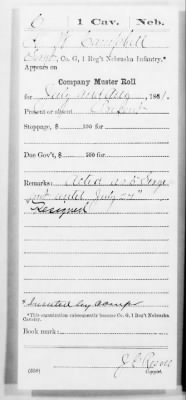 C 1 Cav. Neb.
Campbell
Co. G, 1 Reg't Nebraska Infantry,*
Appears on
Company Muster Roll
for July and Aug, 1861.
Present or absent Present
Stoppage, $ 100 for
Due Gov't, $ 100 for
Remarks: Acted as
until July 27"
Resigned
*This organization subsequently became Co. G, 1 Reg't Nebraska
Cavalry.
Book mark:
(358) Copyist.